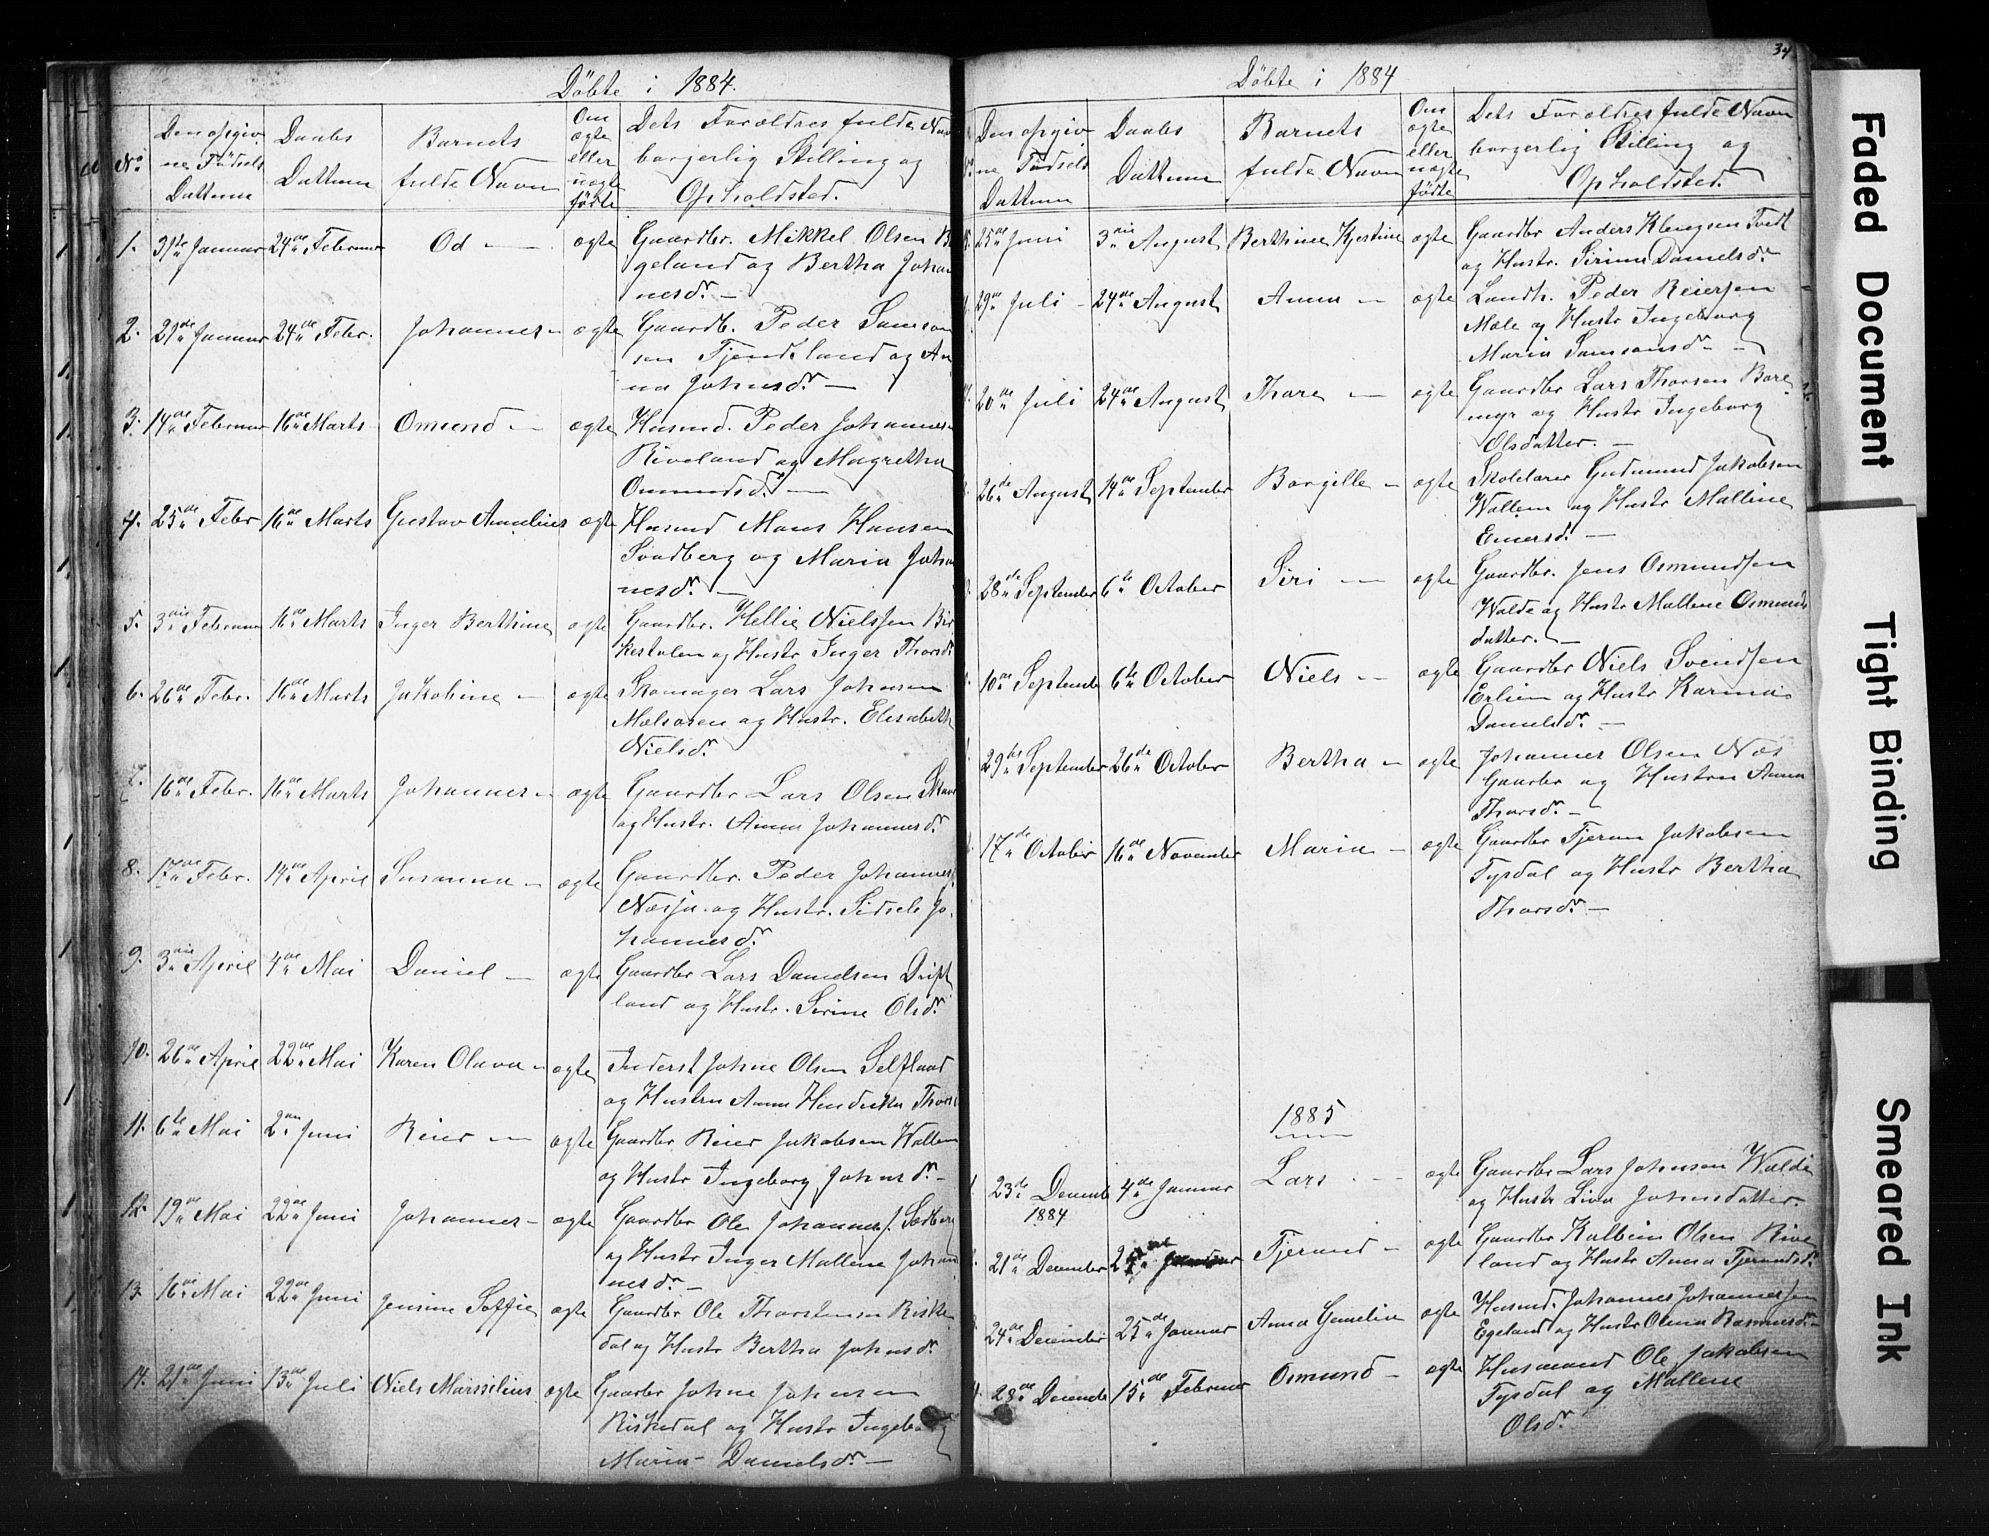 Døbte i 1884.
No.
Den opgiv
ne Fødsels
Dattum
Daabs
Dattum
Barnets
fulde Navn
Om
ægte
eller
uægte
fødte
Dets Forældres fulde Navn
borgerlig Stilling og
Opholdsted.
1. 31te Januar 24de Februar Od — ægte Gaardbr. Mikkel Olsen
geland og Bertha Johan
nesdr. —
2. 29de Januar 24de Febr. Johannes — ægte Gaardb. Peder Samson
sen Tjendeland og An
na Johnsdr. —
3. 14de Februar 16de Marts Omund — ægte Husmd. Peder Johannes
Riveland og Magretha
Omundsd. —
4. 25de Febr 16de Marts Gustav Amelius ægte Husmd Mons Hansen
Svadberg og Maria Joha
nesdr. —
5. 3die Februar 16de Marts Inger Berthine ægte Gaardbr. Hellie Nielssen Bir
kestølen og Hustr Inger Thorsdr
6. 26de Febr. 16de Marts Jakobine — ægte Skomager Lars Johnsen
Mælsosen og Hustr. Elisabeth
Nielsdr.
7. 16de Febr. 16de Marts Johannes — ægte Gaardbr Lars Olsen
og Hustr. Anna Johannesdr.
8. 17de Febr. 14de April Susanna — ægte Gaardbr. Peder Johannes
Næsja og Hustr. Sidsele Jo
hannesdr.
9. 3die April 4de Mai Daniel — ægte Gaardbr Lars Danielsen
land og Hustr. Sirine Olsdr.
10. 26de April 22de Mai Karen Olava — ægte Inderst Johne Olsen Selfland
og Hustru Anna Hendrikka
11. 6te Mai 2den Juni Reier — ægte Gaardbr Reier Jakobsen Wallem
og Hustr Ingeborg Johnsdr. —
12. 19de Mai 22de Juni Johannes — ægte Gaardbr Ole Johannes. Sædberg
og Hustr Inger Mallene Johan
nesdr. —
13. 16de Mai 22de Juni Jensine Soffie ægte Gaardbr Ole Thorstensen Riske
dal og Hustr Bertha Johnsdr.
14. 21de Juni 13de Juli Niels Marsselius ægte Gaarbr Johne Johnsen
Riskedal og Hustr Ingeborg
Maria Danielsdr. —
34
Døbte i 1884
Den opgiv
ne Fødsels
Dattum
Daabs
Dattum
Barnets
fulde Navn
Om
ægte
eller
uægte
fødte
Dets Forældres fulde Navn
borgerlig Stilling og
Opholdsted.
25de Juni 3die August Berthine Kjerstine ægte Gaardbr Anders Klengsen Tvedt
og Hustr. Sirina Danielsdr.
29de Juli 24de August Anna — ægte Landh. Peder Reiersen
Mæle og Hustr Ingeborg
Maria Samsonsdr —
20de Juli 24de August Thore — ægte Gaardbr Lars Thorsen Bore
myr og Hustr Ingeborg
Olsdatter. —
26de August 14de September Borgille — ægte Skolelærer Gudmund Jakobsen
Wallem og Hustr Mallene
Einersd. —
28de September 6te October Siri — ægte Gaardbr. Jens Osmundsen
Walde og Hustr Mallene Osmunds
datter. —
10de September 6te October Niels — ægte Gaardbr Niels Svendsen
Erlien og Hustr Karina
Danielsdr. —
29de September 26de October Bertha — ægte Johannes Olsen Næs
Gaarbr og Hustru Anna
Thorsdr. —
17de October 16de November Maria — ægte Gaardbr Tjeran Jakobsen
Tysdal og Hustr Bertha
Thorsdr. —
1885
23de December
1884
4de Januar Lars — ægte Gaardbr Lars Johnsen Walde
og Hustr Lina Johnsdatter.
21de December Tjerand — ægte Gaardbr Kolbein Olsen Rive
land og Hustr Anna Tjerandsdr.
24de December 25de Januar Anna Gemeline ægte Husmd. Johannes Johannessen
Egeland og Hustr Olena Rasmusdr.
28de December 15de Februar Osmund — ægte Husmand Ole Jakobsen
Tysdal og Mallene
Olsdr.
Faded Document
Tight Binding
Smeared Ink